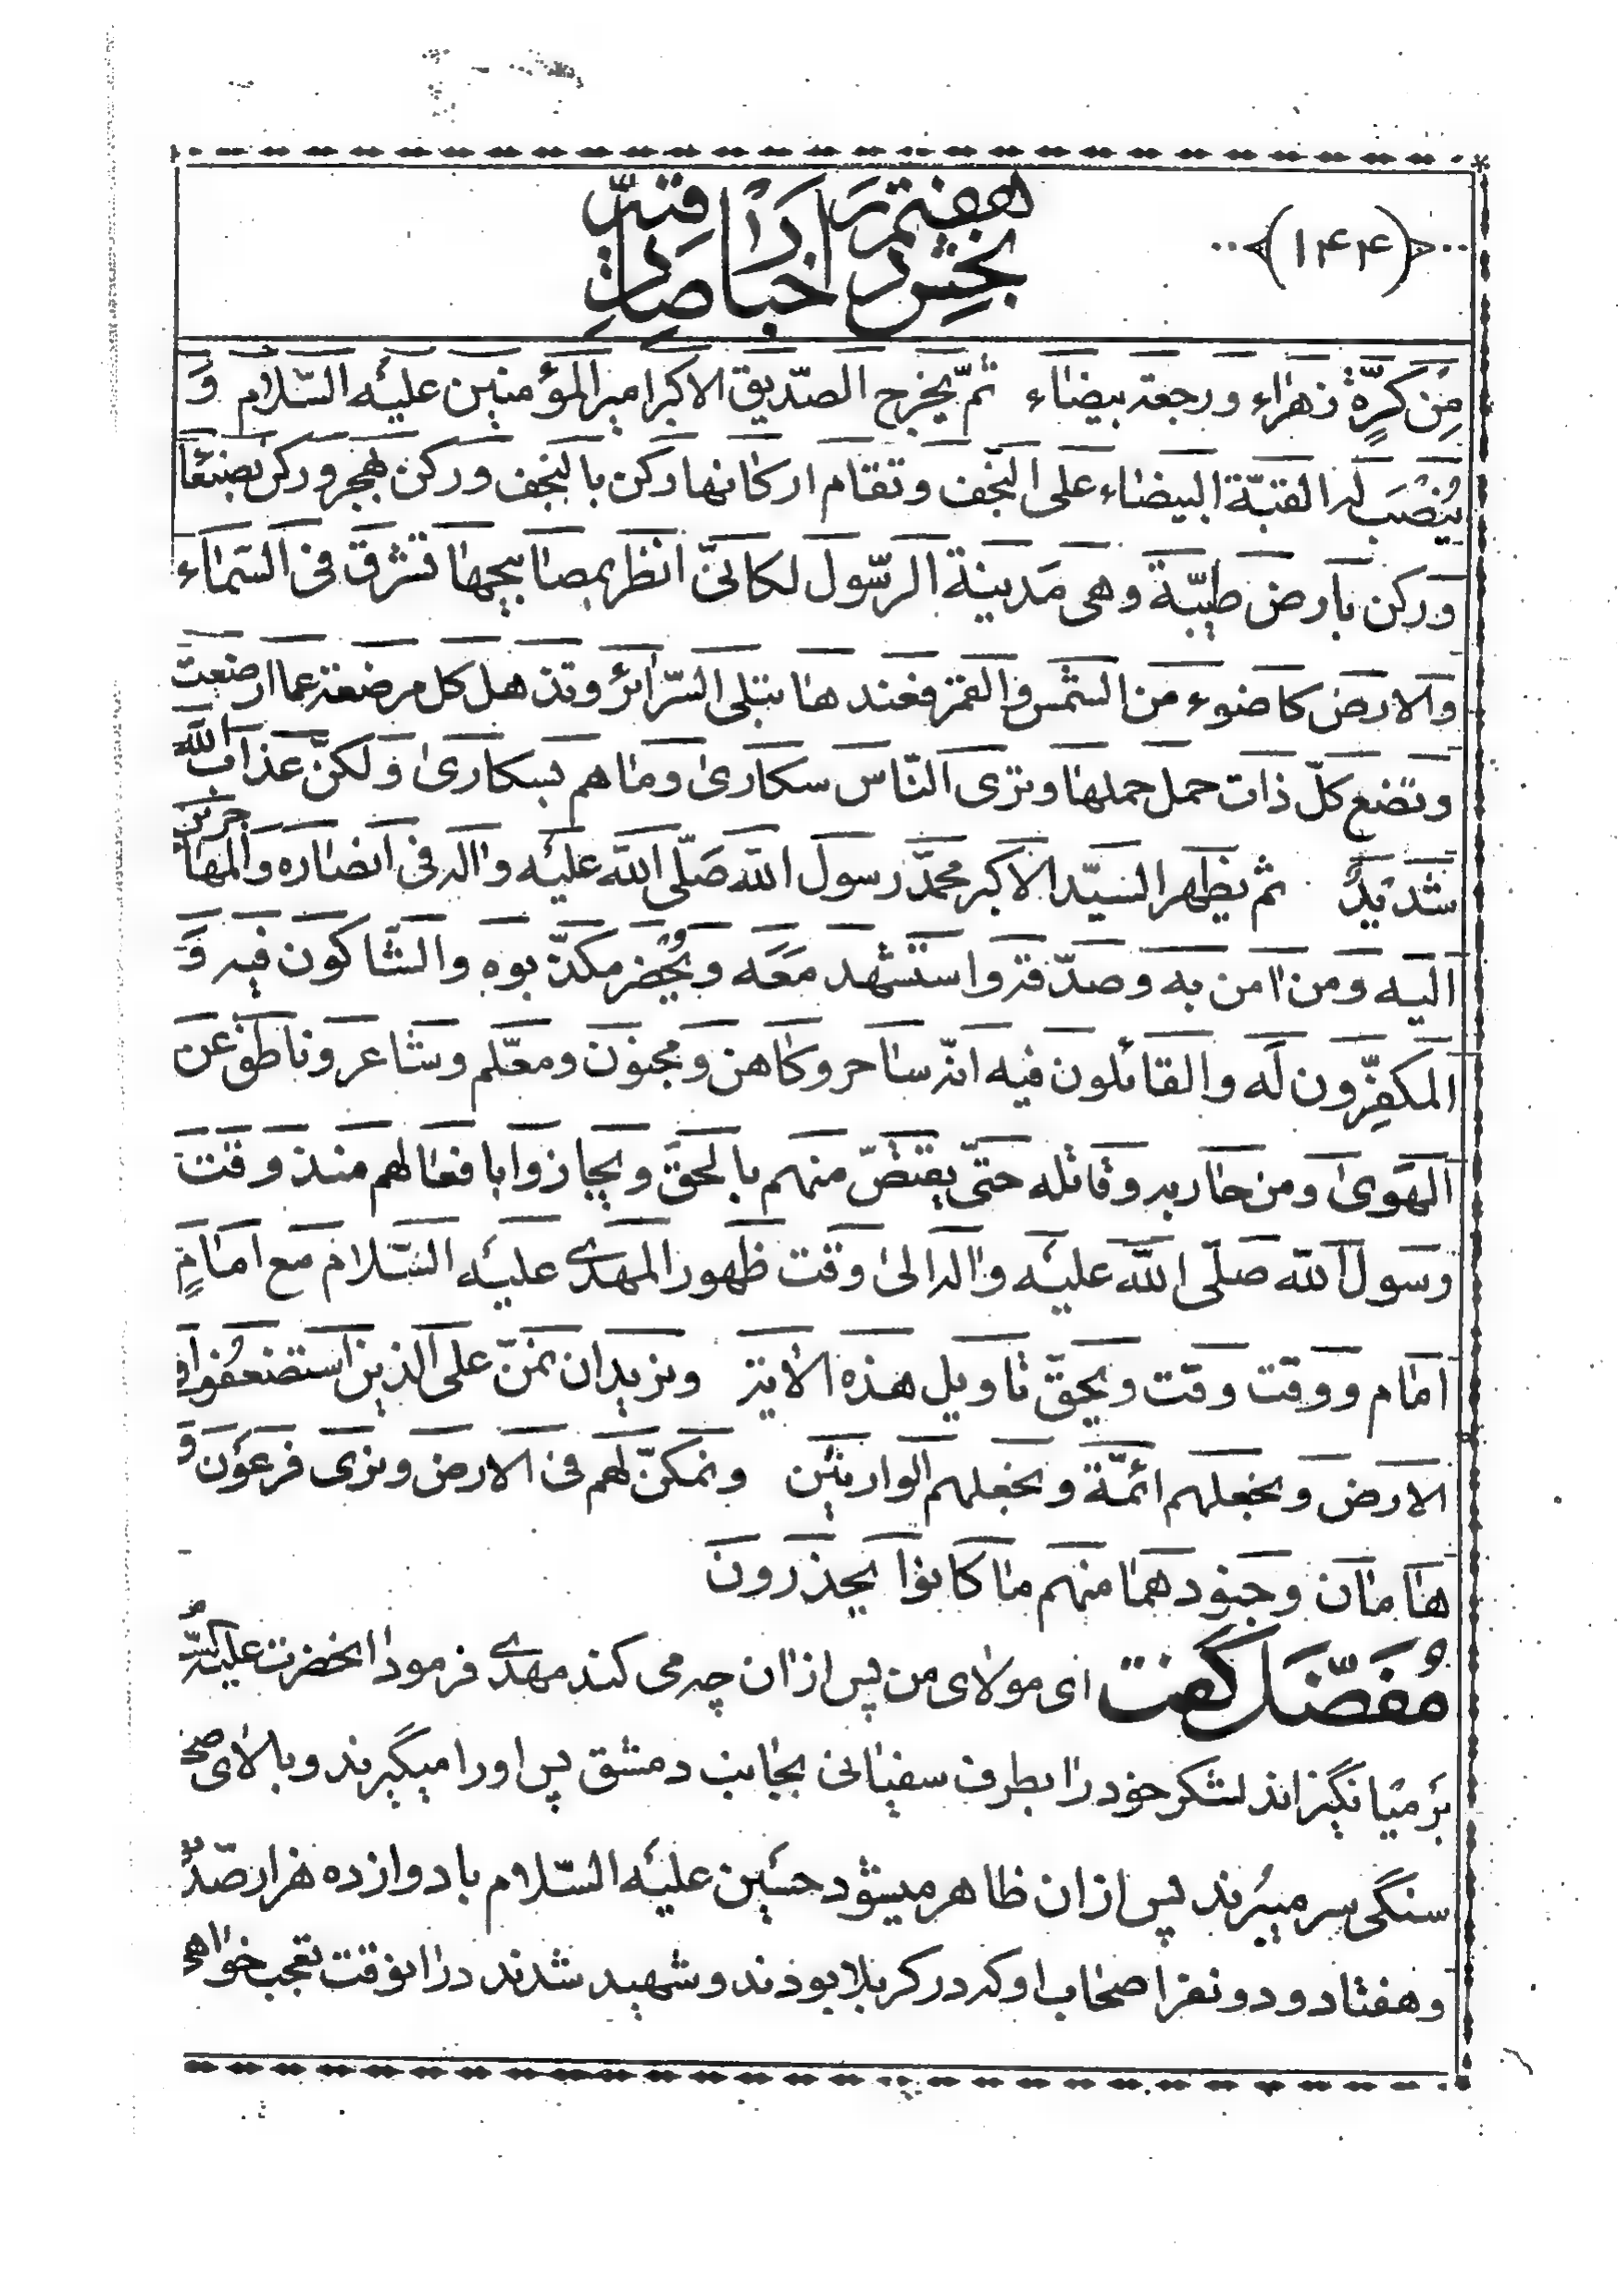 ﴿۱۴۴﴾
بخش هفتم در اخبار صادقیّه
مِن كَرَّةٍ زهراء ورجعة بيضاء ثمّ يخرج الصّدّيق الاكبر امير المؤمنين عليه السّلام و
يُنْصَب له القبّة البيضاء على النّجف وتقام اركانها ركن بالنجف وركن بهجر وركن بصنعا
وركن بارض طيّبة وهى مَدينة الرّسول لكانّى انظر بمصابيحها تشرق فى السّماء
والارض كاضوء من الشّمس والقمر فعندها تبلى السّرائر وتذهل كل مرضعة عما ارضعت
وتضع كلّ ذات حمل حملها وترى النّاس سكارىٰ وماهم بسكارىٰ ولكنّ عذاب اللّه
شَديدٌ ثم يظهر السّيّد الاكبر محمّد رسول اللّه صَلّى اللّه عليه واٰله فى انصاره والمهاجرين
اليه ومن اٰمن به وصدّقه واستشهد مَعَه ويُحضر مكذّبوه والشّاكون فيه و
المكفِّرون لَه والقائلون فيه انّه ساحر وكاهن ومجنون ومعّلم وشاعر وناطق عن
الهَوىٰ ومن حاربه وقاتله حتّى يقتصّ منهم بالحقّ ويجازوا بافعالهم منذ وقت
رسول اللّه صلّى اللّه عليه واٰله الىٰ وقت ظهور المهدى عليه السّلام مع امامٍ
امام ووقت وقت ويحقّ تاويل هذه الاٰية ونريد ان نمنّ على الذين استضعفوا فى
الارض ونجعلهم ائمّة ونجعلهم الوارثين ونمكّن لهم فى الارض ونرى فرعون و
هامان وجنودهما منهم ماكانوا يحذرون
مُفَضّل گفت ای مولای من پس از ان چه می کند مهدی فرمود انحضرت علیه السّلام
بَر میانگیزاند لشکر خود را بطرف سفیانی بجانب دمشق پس اورا میگیرند وبالای صخ
سنگی سر میبُرند پس از ان ظاهر میشود حسین علیه السّلام با دوازده هزار صدّیق
وهفتاد ودو نفر اصحاب او که در کربلا بودند وشهید شدند در انوقت تعجب خواهی